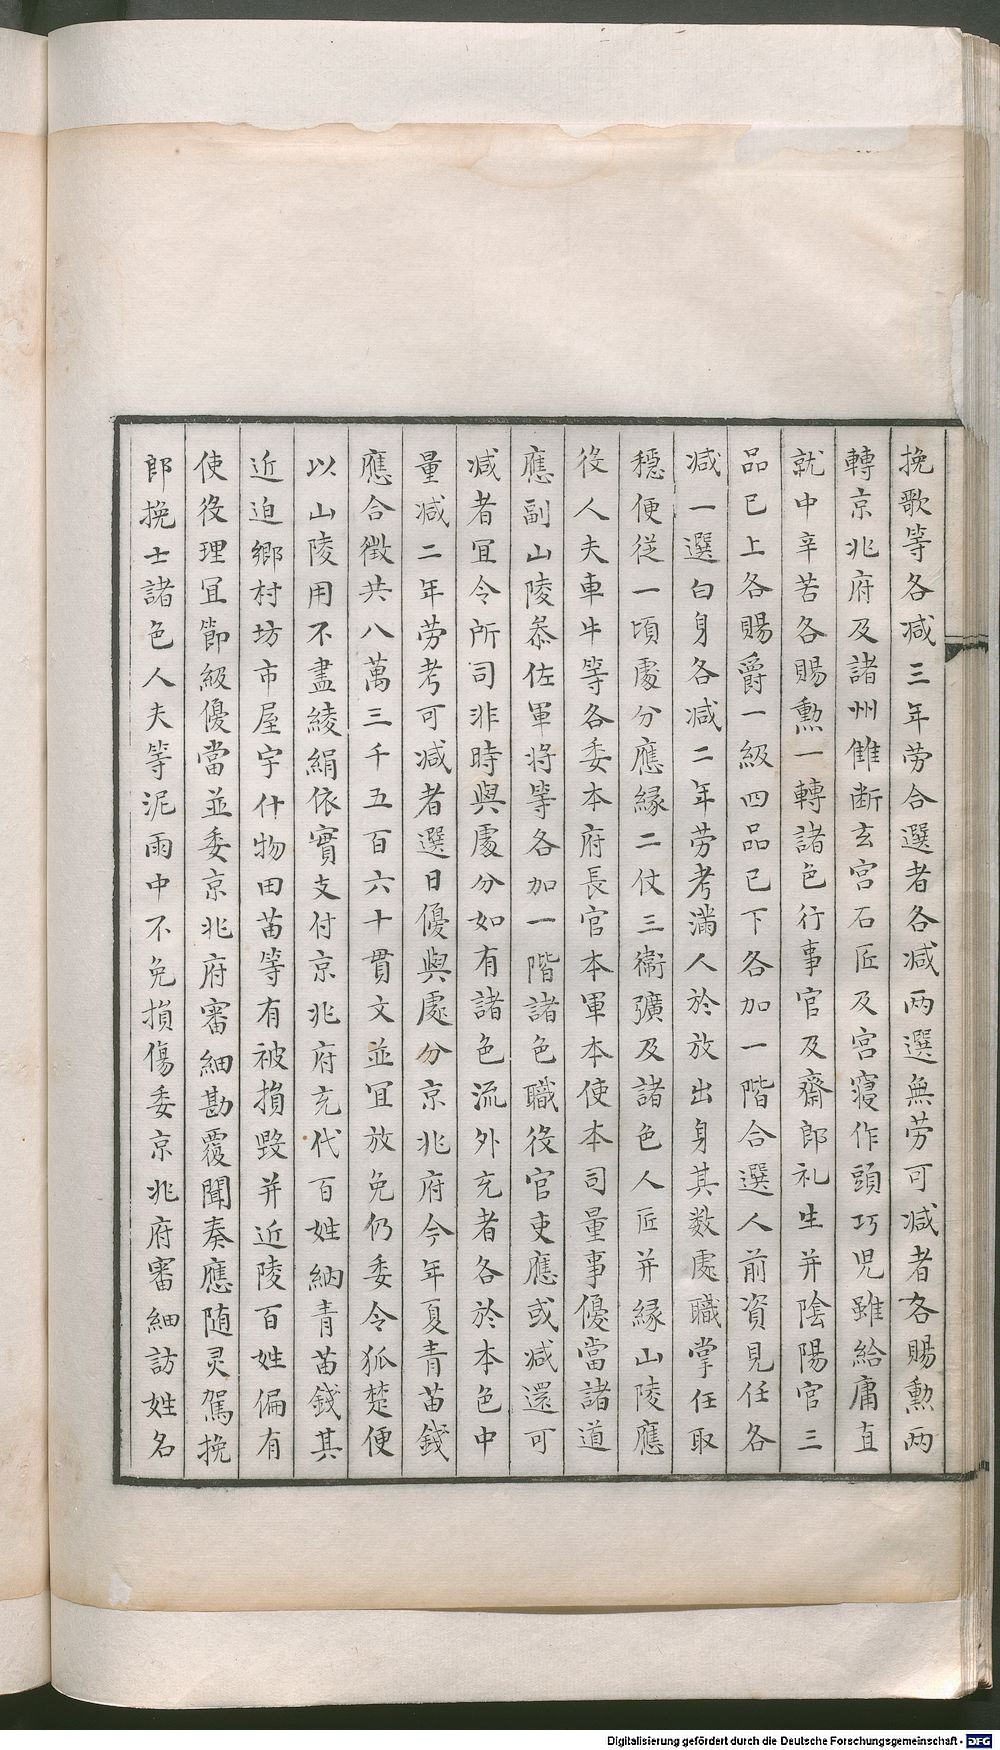 挽歌等各減三年劳合選者各減两選無劳可減者各賜勲两
轉京兆府及諸州雔断玄宫石匠及宫寝作頭巧児雖給庸直
就中辛苦各賜勲一轉諸色行事官及齋郎礼生并陰陽官三
品已上各賜爵一級四品已下各加一階合選人前資見任各
减一選白身各减二年劳考滿人於放出身其数處職掌任取
穩便従一頃處分應縁二仗三衞彍及諸色人匠并縁山陵應
役人夫車牛等各委本府長官本軍本使本司量事優當諸道
應副山陵叅佐軍将等各加一階諸色職役官吏應或减還可
减者冝令所司非時與處分如有諸色流外充者各於本色中
量减二年劳考可减者選日優與處分京兆府今年夏青苗錢
應合徴共八萬三千五百六十貫文並冝放免仍委令狐楚便
以山陵用不盡綾絹依實支付京兆府充代百姓納青苗錢其
近迫鄉村坊市屋宇什物田苗等有被損毀并近陵百姓偏有
使役理冝節級優當並委京兆府審細勘覆聞奏應随灵駕挽
郎挽士諸色人夫等泥雨中不免損傷委京兆府審細訪姓名
Digitalisierung gefördert durch die Deutsche Forschungsgemeinschaft - DFG